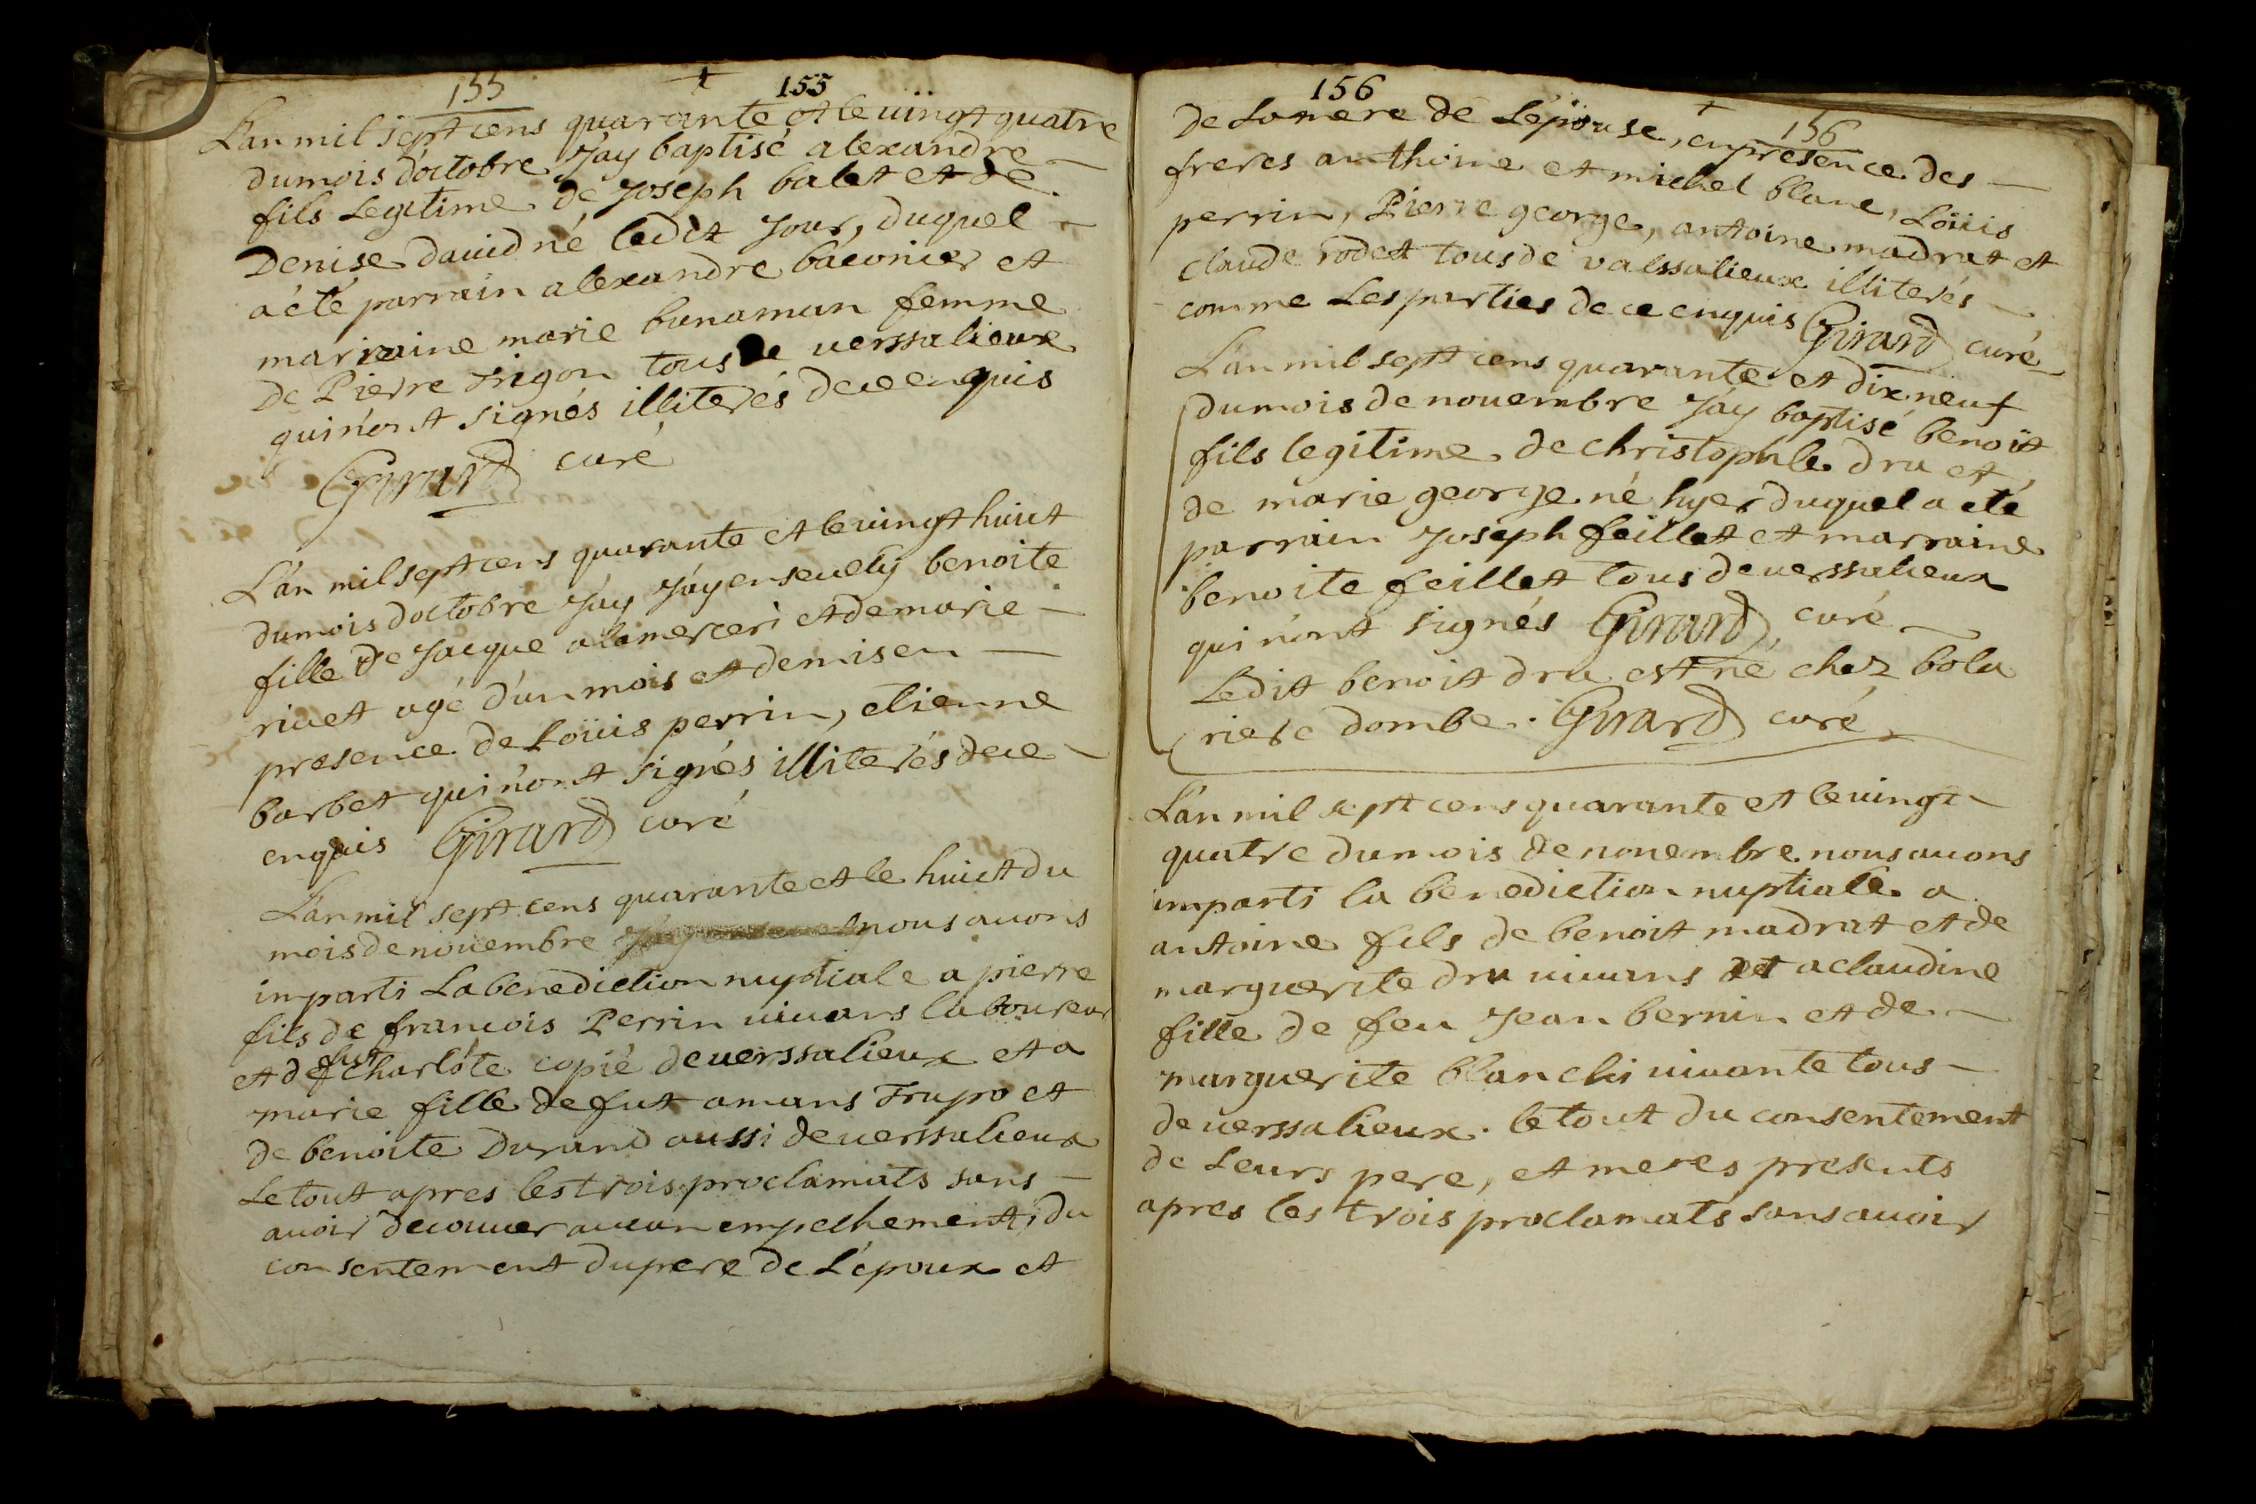 155
155
L'an mil sept cens quarante et le uingt quatre
du mois d'octobre Jay baptisé alexandre
fils Legitime de Joseph balet et de
Denise dauid né ledit Jour, duquel
a été parrain alexandre baconier et
marraine marie banaman femme
de Pierre trigon tous de uerssalieux
qui n'ont signés illiterés de ce enquis
Girard curé
L'an mil sept cens quarante et le uingt huict
du mois doctobre Jáy Jáy enseuely benoite
fille de Jacque alamerceri et de marie
riuet agé d'un mois et demis en
presence de Loüis perrin, etienne
barbet qui n'ont signés illiterés de ce
enquis Girard curé
L'an mil sept cens quarante et le huict du
mois de nouembre nous auons
imparti La benediction nuptiale a pierre
fils de francois Perrin uiuans laboureur
et de fut Charlóte copié de uerssalieux et a
marie fille de fut amans Trupo et
de benoite Durand aussi de uerssalieux
Le tout apres les trois proclamats sans
auoir decouuer aucun empechement, du
consentement du pere de L'époux et
156
156
de La mere de L'épouse, en presence des
freres anthoine et michel blanc, Loüis
perrin, Pierre george, antoine madrat et
claude rodet tous de valssalieux illiterés
comme Les parties de ce enquis Girard curé
L'an mil sept cens quarante et dix neuf
du mois de nouembre Jáy baptisé benoit
fils legitime de christophle dru et
de marie george né hyer duquel a eté
parrain Joseph feillet et marraine
benoite feillet tous de uerssalieux
qui n'ont signés Girard, curé
Ledit benoit dru est né chez bola
riere dombe. Girard curé
L'an mil sept cens quarante et le uingt
quatre du mois de nouembre nous auons
imparti la benediction nuptiale a
antoine fils de benoit madrat et de
marguerite dru uiuans et a claudine
fille de feu Jean bernin et de
marguerite blanchi uiuante tous
de uerssalieux. le tout du consentement
de Leurs pere, et meres presents
apres les trois proclamats sans auoir